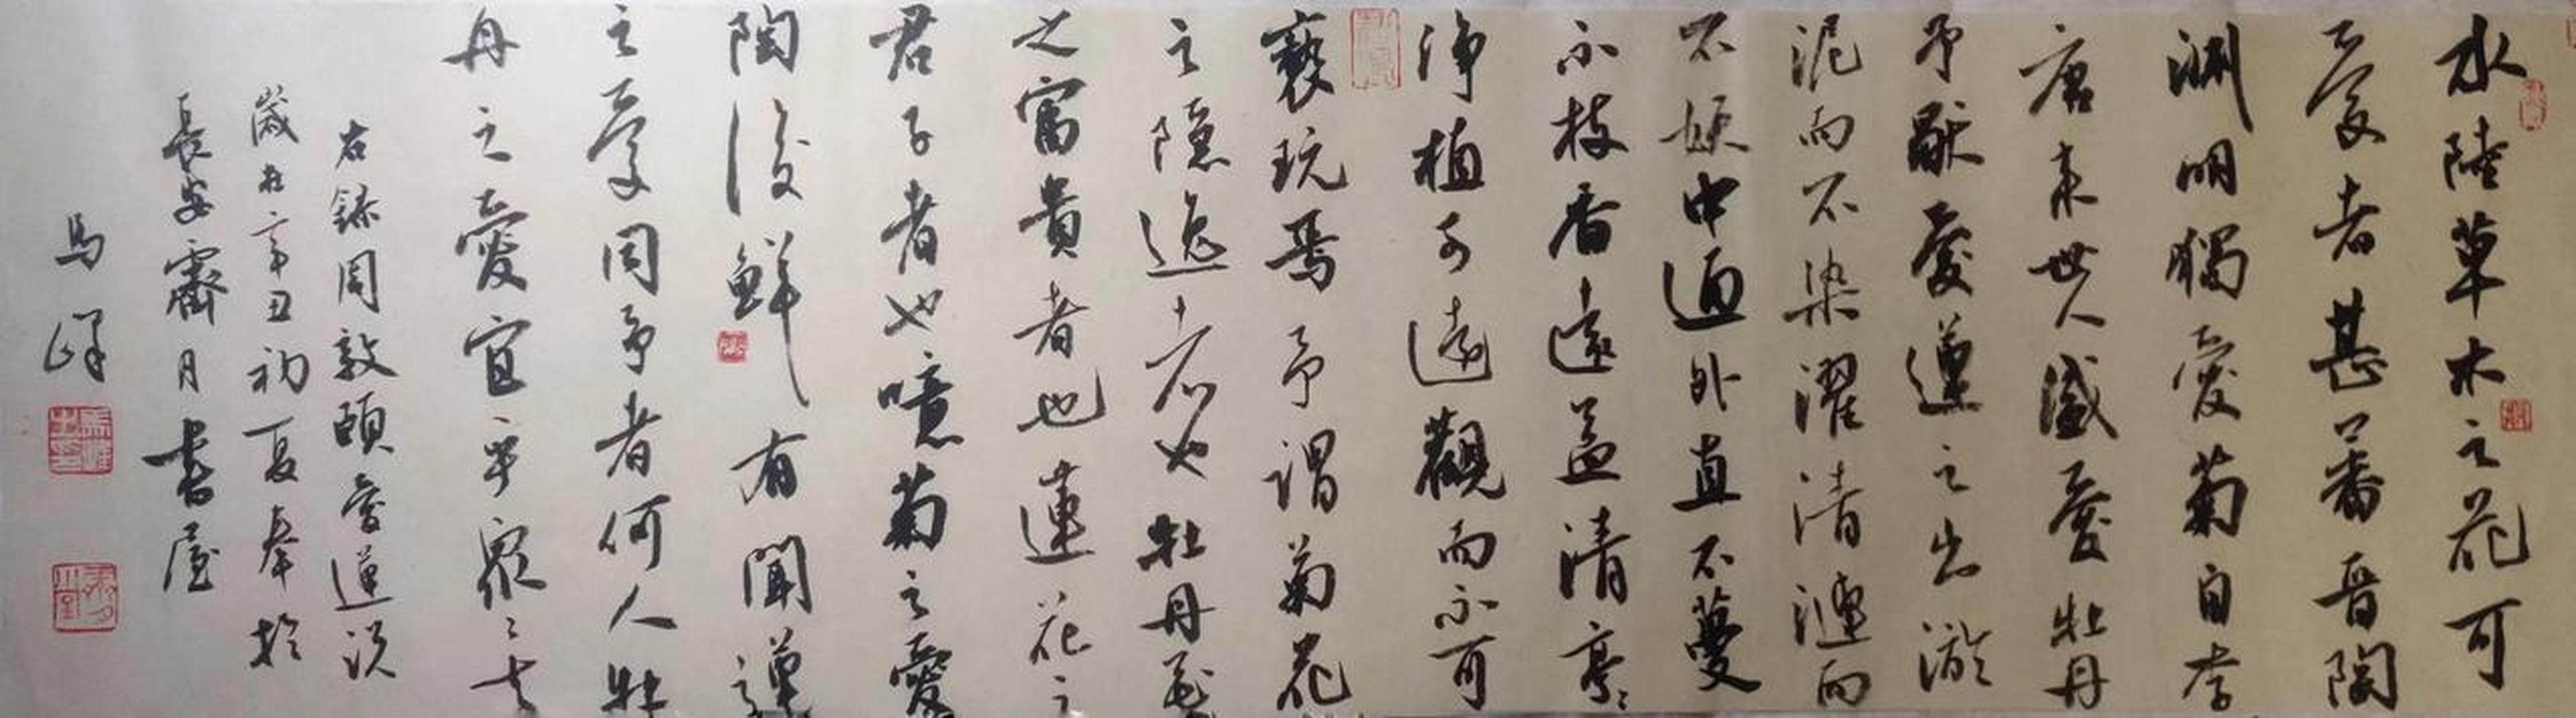 水陸草木之花可
愛者甚蕃晉陶
淵明獨愛菊自李
唐来世人盛愛牡丹
予獻愛蓮之出淤
泥而不染濯清漣而
不妖中通外直不蔓
不枝香遠益清亭亭
淨植可遠觀而不可
褻玩焉予謂菊花
之隱逸者也牡丹花
之富貴者也蓮花之
君子者也噫菊之愛
陶後鮮有聞蓮
之愛同予者何人牡
丹之愛宜乎衆之矣
右録周敦頤愛蓮説
歲在辛丑初夏奉於
長安霽月書屋
馬峰